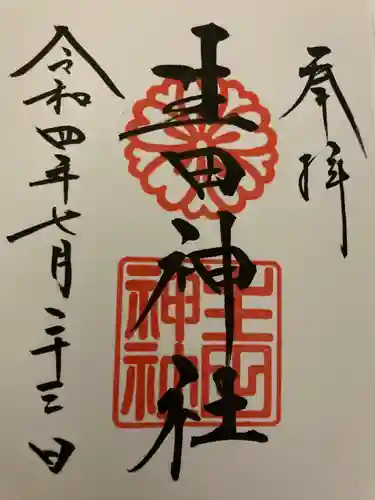 奉拝
生田神社
令和四年七月二十三日
生田神社